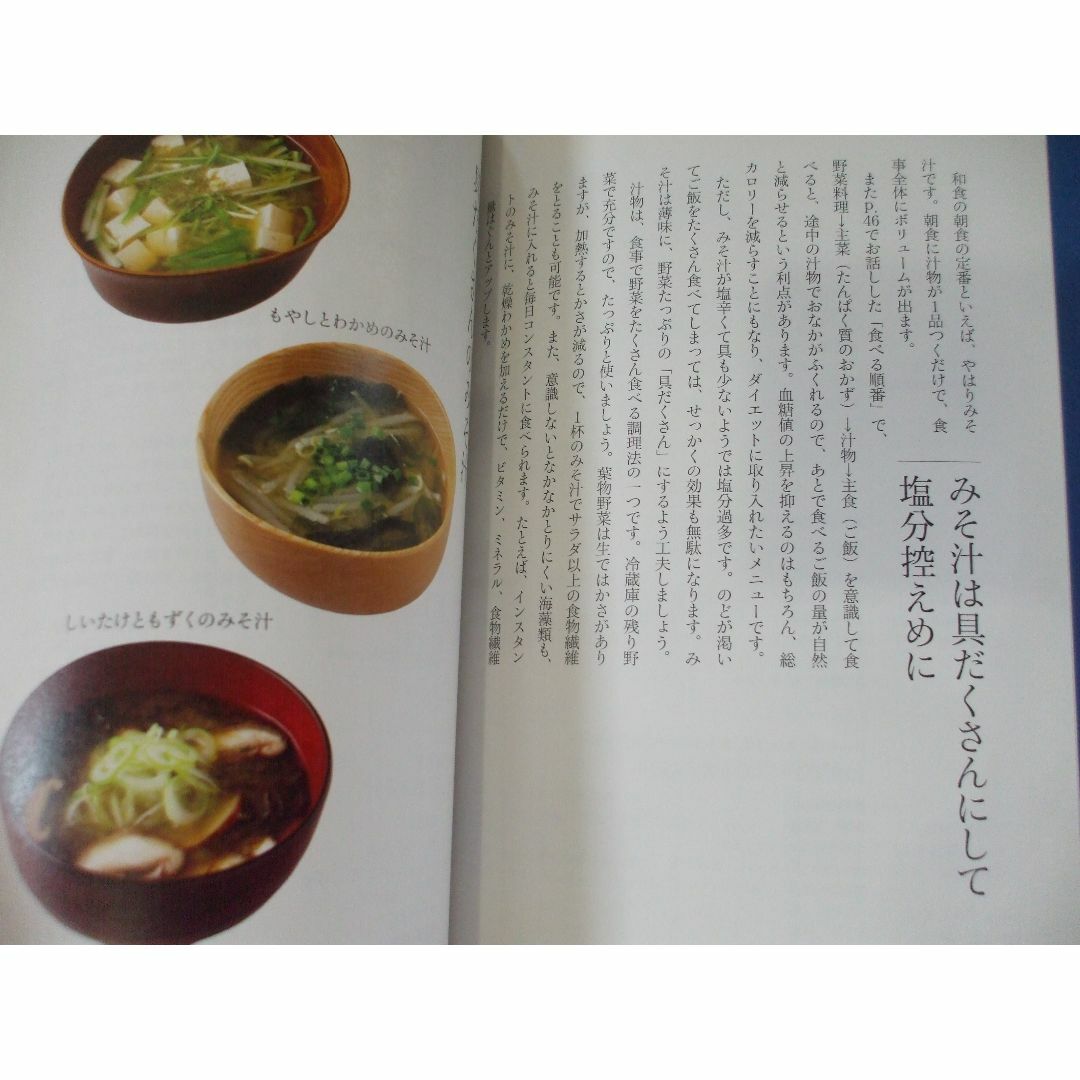 みそ汁は具だくさんにして
塩分控えめに
和食の朝食の定番といえば、やはりみそ
汁です。朝食に汁物が1品つくだけで、食
事全体にボリュームが出ます。
またp.46でお話しした「食べる順番」で、
野菜料理→主菜（たんぱく質のおかず）→汁物→主食（ご飯）を意識して食
べると、途中の汁物でおなかがふくれるので、あとで食べるご飯の量が自然
と減らせるという利点があります。血糖値の上昇を抑えるのはもちろん、総
カロリーを減らすことにもなり、ダイエットに取り入れたいメニューです。
ただし、みそ汁が塩辛くて具も少ないようでは塩分過多です。のどが渇い
てご飯をたくさん食べてしまっては、せっかくの効果も無駄になります。み
そ汁は薄味に、野菜たっぷりの「具だくさん」にするよう工夫しましょう。
汁物は、食事で野菜をたくさん食べる調理法の一つです。冷蔵庫の残り野
菜で充分ですので、たっぷりと使いましょう。葉物野菜は生ではかさがあり
ますが、加熱するとかさが減るので、1杯のみそ汁でサラダ以上の食物繊維
をとることも可能です。また、意識しないとなかなかとりにくい海藻類も、
みそ汁に入れると毎日コンスタントに食べられます。たとえば、インスタン
トのみそ汁に、乾燥わかめを加えるだけで、ビタミン、ミネラル、食物繊維
量はぐんとアップします。
もやしとわかめのみそ汁
しいたけともずくのみそ汁